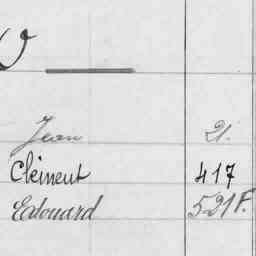 Jean 21.
Clément 417
Edouard 521F.